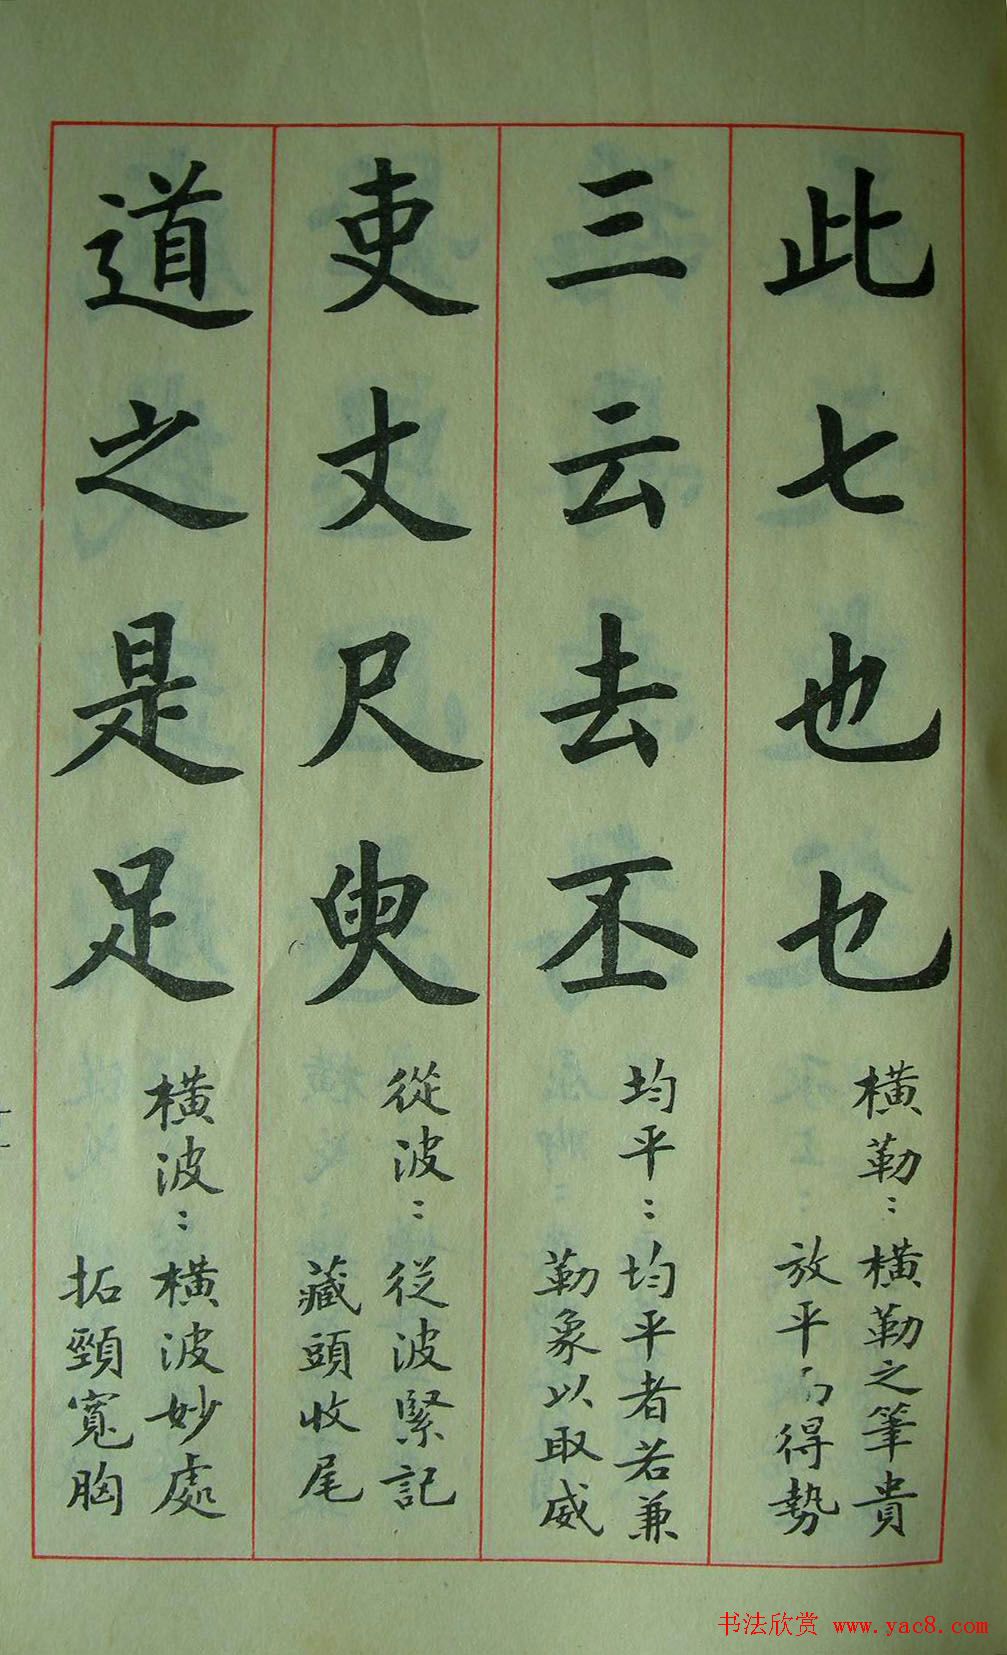 此七也乜
橫勒：橫勒之筆貴
放平得勢
三云去丕
均平：均平者若兼
勒象以取威
吏丈尺臾
從波：従波緊記
藏頭收尾
道之是足
橫波：橫波妙處
拓頸寬胸
书法欣赏 www.yac8.com